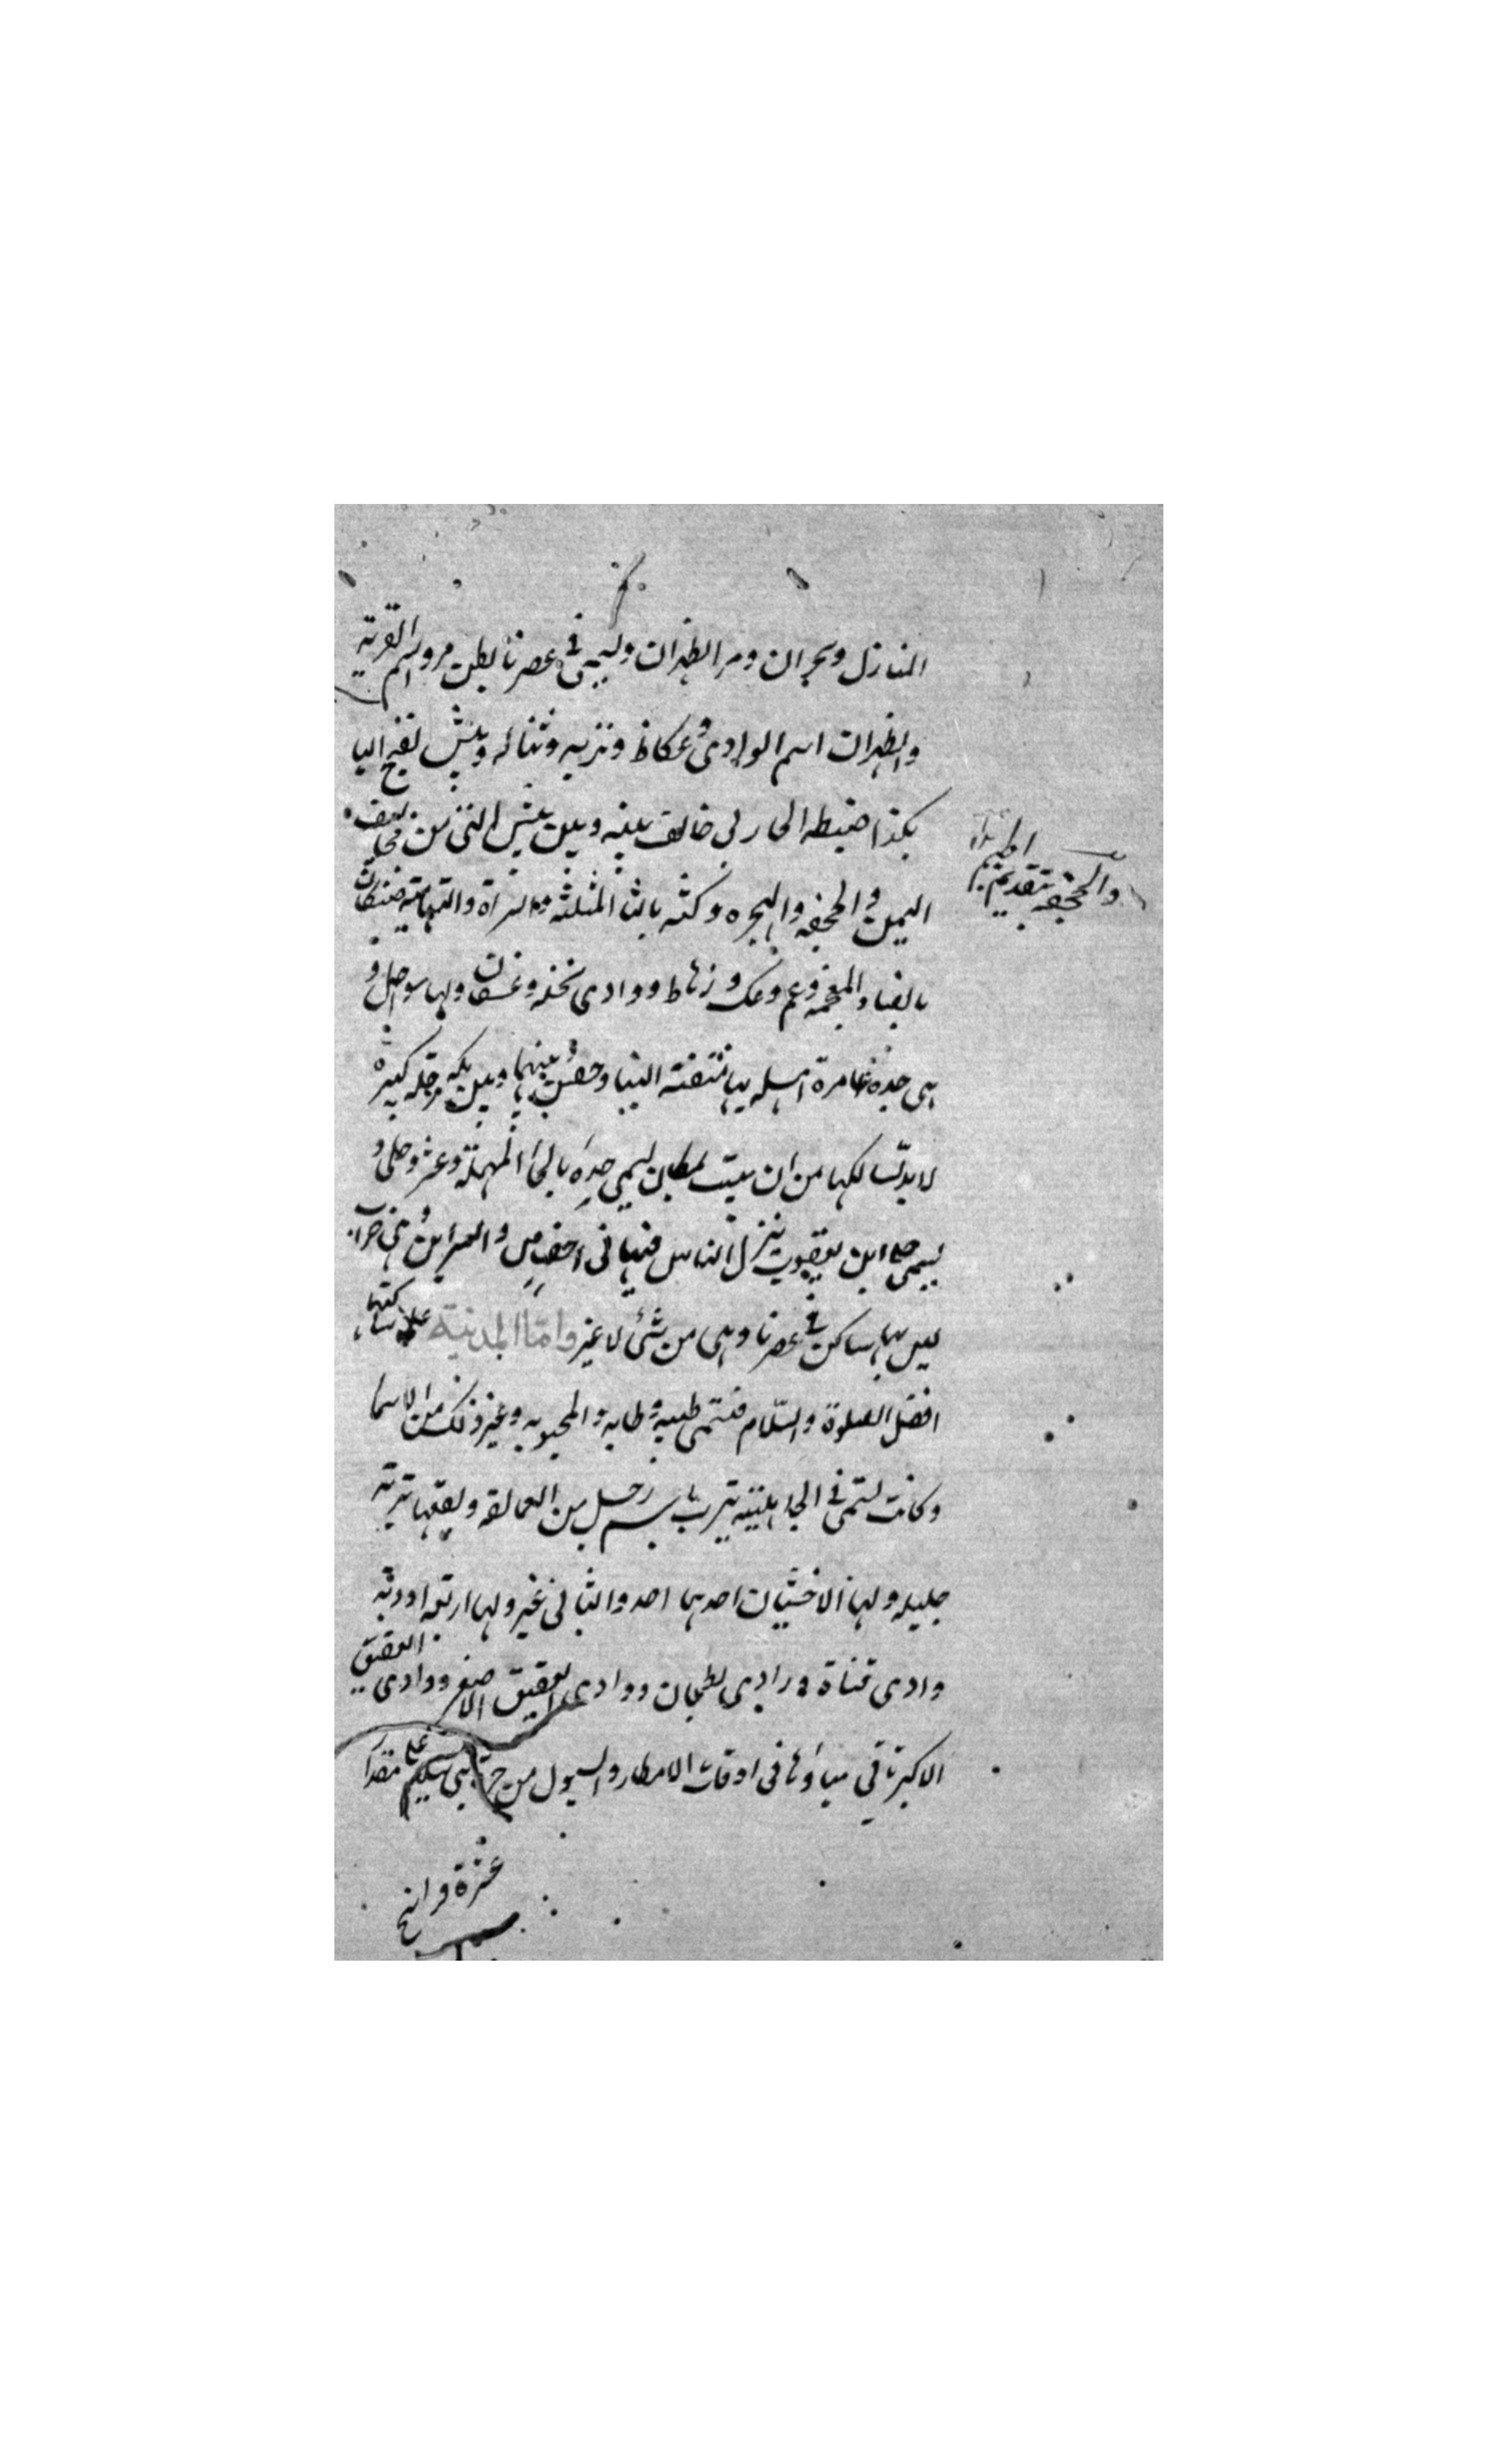 المنازل ونجران ومر الظهران ويسمى في عصرنا بطن مر ومر اسم القرية
والظهران اسم الوادي وعكاظ وتربه وتباله وبيش بفتح اليا
هكذا ضبطه الحازمي خالف بينه وبين بيش التي من مخاليف
اليمن والجحفه والهجره وكثه بالثا المثلثه والسراة والتهامه ضنكان
بالضاد المعجمه وعم وعك ورهاط ووادي نخله وعسفان ولها سواحل و
هي جده عامرة اهله بها البنا بينهما وبين مكه مرحله كبيرة
لا بد لسالكها من ان يبيت بمكان يسمى حده بالحا المهملة وعثر وحلى و
يسمى حلى ابن يعقوب ينزل الناس فيها في اخصاص والسرين وهي خراب
ليس بها ساكن في عصرنا وهي من شئ لا غير واما المدينة على ساكنها
افضل الصلوة والسلام فتسمى طيبه وطابه والمحبوبه وغير ذلك من الاسما
وكانت تسمى في الجاهلية يثرب باسم رجل من العمالقه وبقعها تربة
جليله ولها الاخشبان احدهما احد والثاني عير ولها اربعه اودية
وادي قناة ووادي بطحان ووادي العقيق الاصغر ووادي العقيق
الاكبر تاتي مياؤها في اوقات الامطار والسيول من حرة بني سليم على مقدار
عشرة فراسخ
والجحفه بتقديم الجيم